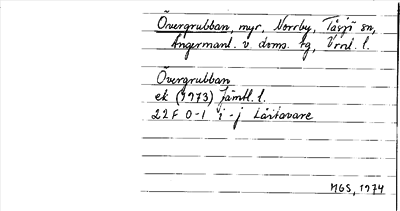 Övergrubban, myr, Norrby, Tåsjö sn,
Ångermanl. v. doms. sg, Vrnl. l.
Övergrubban
ek (1973) Jämtl. l.
22F 0-1 i-j Låitavare
MGS, 1974